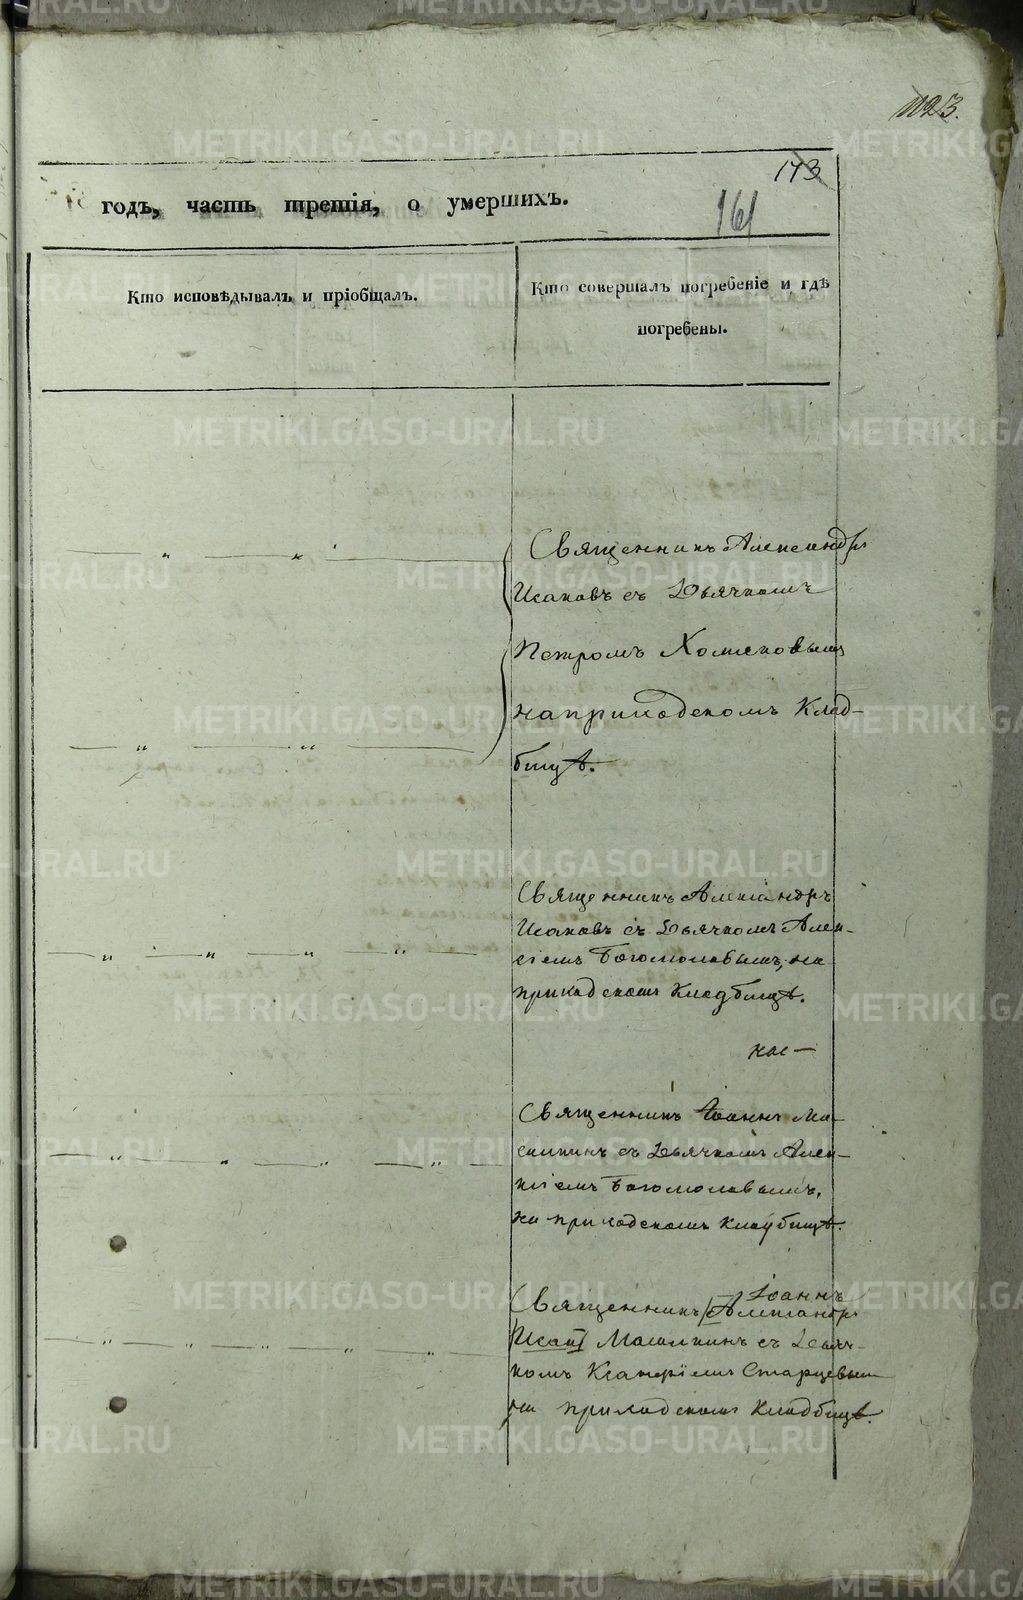 1123.
143
годъ, часть третія, о умершихъ.
161
Кто исповѣдывалъ и пріобщалъ.
Кто совершалъ погребеніе и гдѣ
погребены.
Священникъ Александръ
Исаковъ съ Дьячкомъ
Петромъ Хомяковымъ
на приходскомъ Клад-
бищѣ.
Священникъ Александръ
Исаковъ съ Дьячкомъ Алек-
сіемъ Богомоловымъ, на
приходскомъ Кладбищѣ.
Священникъ Іоаннъ
съ Дьячкомъ Алек-
сіемъ Богомоловымъ,
на приходскомъ Кладбищѣ.
Іоаннъ
Священникъ Александръ
Исак съ Дьяч-
комъ Старцевым
на приходскомъ Кладбищѣ.
METRIKI.GASO-URAL.RU